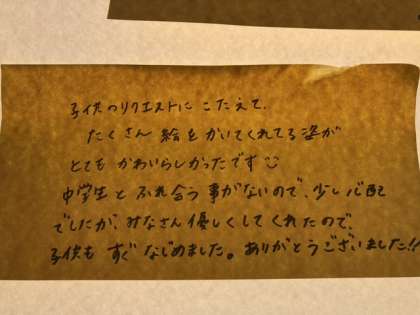 子供のリクエストにこたえて、
たくさん絵をかいてくれてる姿が
とてもかわいらしかったです☺
中学生とふれ合う事がないので、少し心配
でしたが、みなさん優しくしてくれたので、
子供もすぐなじめました。ありがとうございました!!